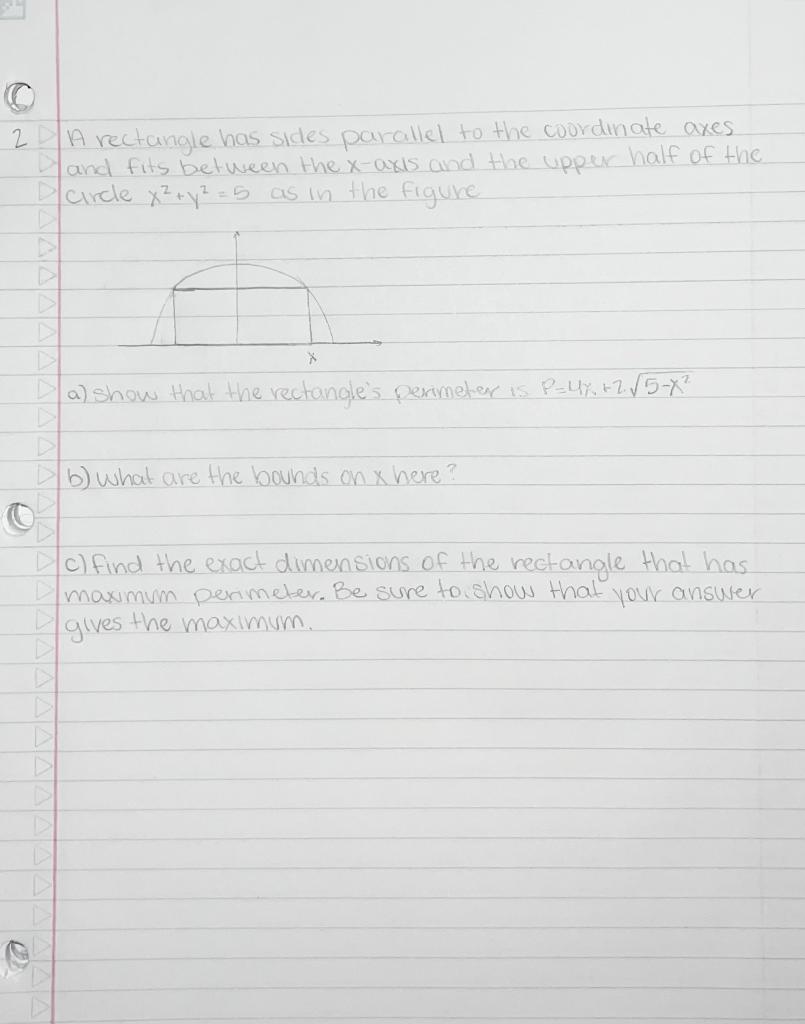 2 A rectangle has sides parallel to the coordinate axes
and fits between the x-axis and the upper half of the
circle x²+y²=5 as in the figure
x
a) Show that the rectangle's perimeter is P=4x+2√5-x²
b) What are the bounds on x here?
c) find the exact dimensions of the rectangle that has
maximum perimeter. Be sure to show that your answer
gives the maximum.